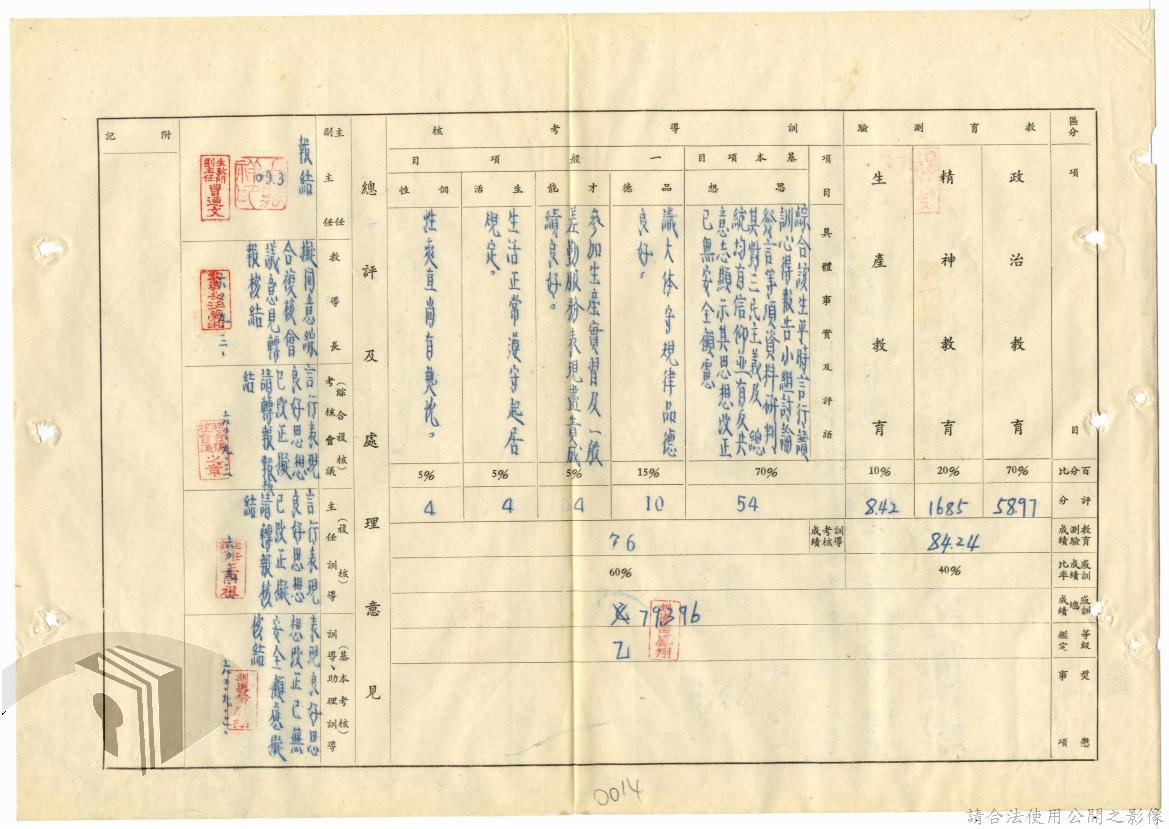 區分
項目
教育測驗
政治教育
精神教育
生產教育
訓導考核
項目
具體事實及評語
基本項目
思想
綜合該生平時言行讀
訓心得報告小組討論
發言等項資料研判
其對三民主義及 總
統均有信仰並有反共
意志顯示其思想改正
已無安全顧慮
一般項目
品德
識大体守規律品德
良好。
才能
參加生產實習及一般
差勤服務表現盡責成
績良好。
生活
生活正常遵守起居
規定。
個性
性爽直尚有
百分比
70%
20%
10%
70%
15%
5%
5%
5%
評分
58.97
16.85
8.42
54
10
4
4
4
教育測驗成績
84.24
訓導考核成績
76
感訓成績比率
40%
60%
感訓總成績
79.396
等級鑑定
乙
獎懲事項
總評及處理意見
(基本考核)
訓導、助理訓導
表現良好思
想改正已無
安全顧慮擬
核結
六〇、九、二、
(複核)
主任訓導
言行表現
良好思想
已改正擬
請轉報核
結
(綜合複核)
考核會議
言行表現
良好思想
已改正擬
請轉報核
結
六〇、九、二
教導長
擬同意綜
合複核會
議意見轉
報核結
主任
副主任
報結
09.3
生教所
副主任
曹迺文
附記
0014
請合法使用公開之影像